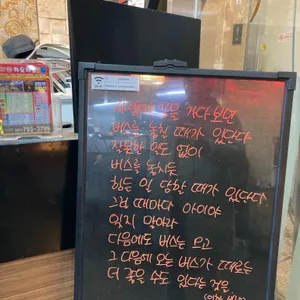 사람이 길을 가다 보면
버스를 놓칠 때가 있단다
잘못한 일도 없이
버스를 놓치듯
힘든 일 당할 때가 있단다
그럴 때마다 아이야
잊지 말아라
다음에도 버스는 오고
그 다음에 오는 버스가 때로는
더 좋을 수도 있다는 것을